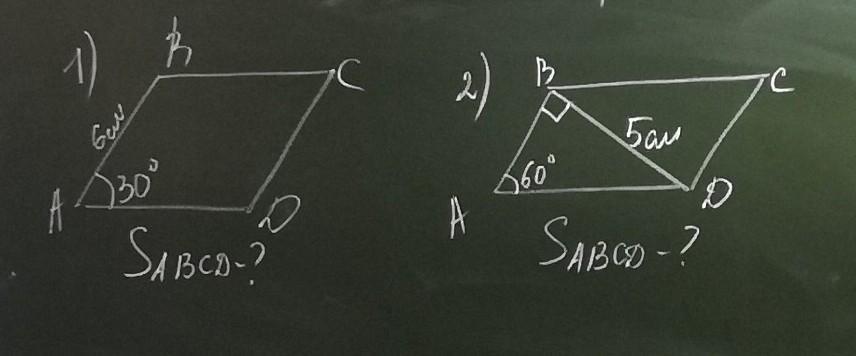 1)
B
C
6см
30°
A
D
S ABCD - ?
2)
B
C
5см
60°
A
D
S ABCD - ?